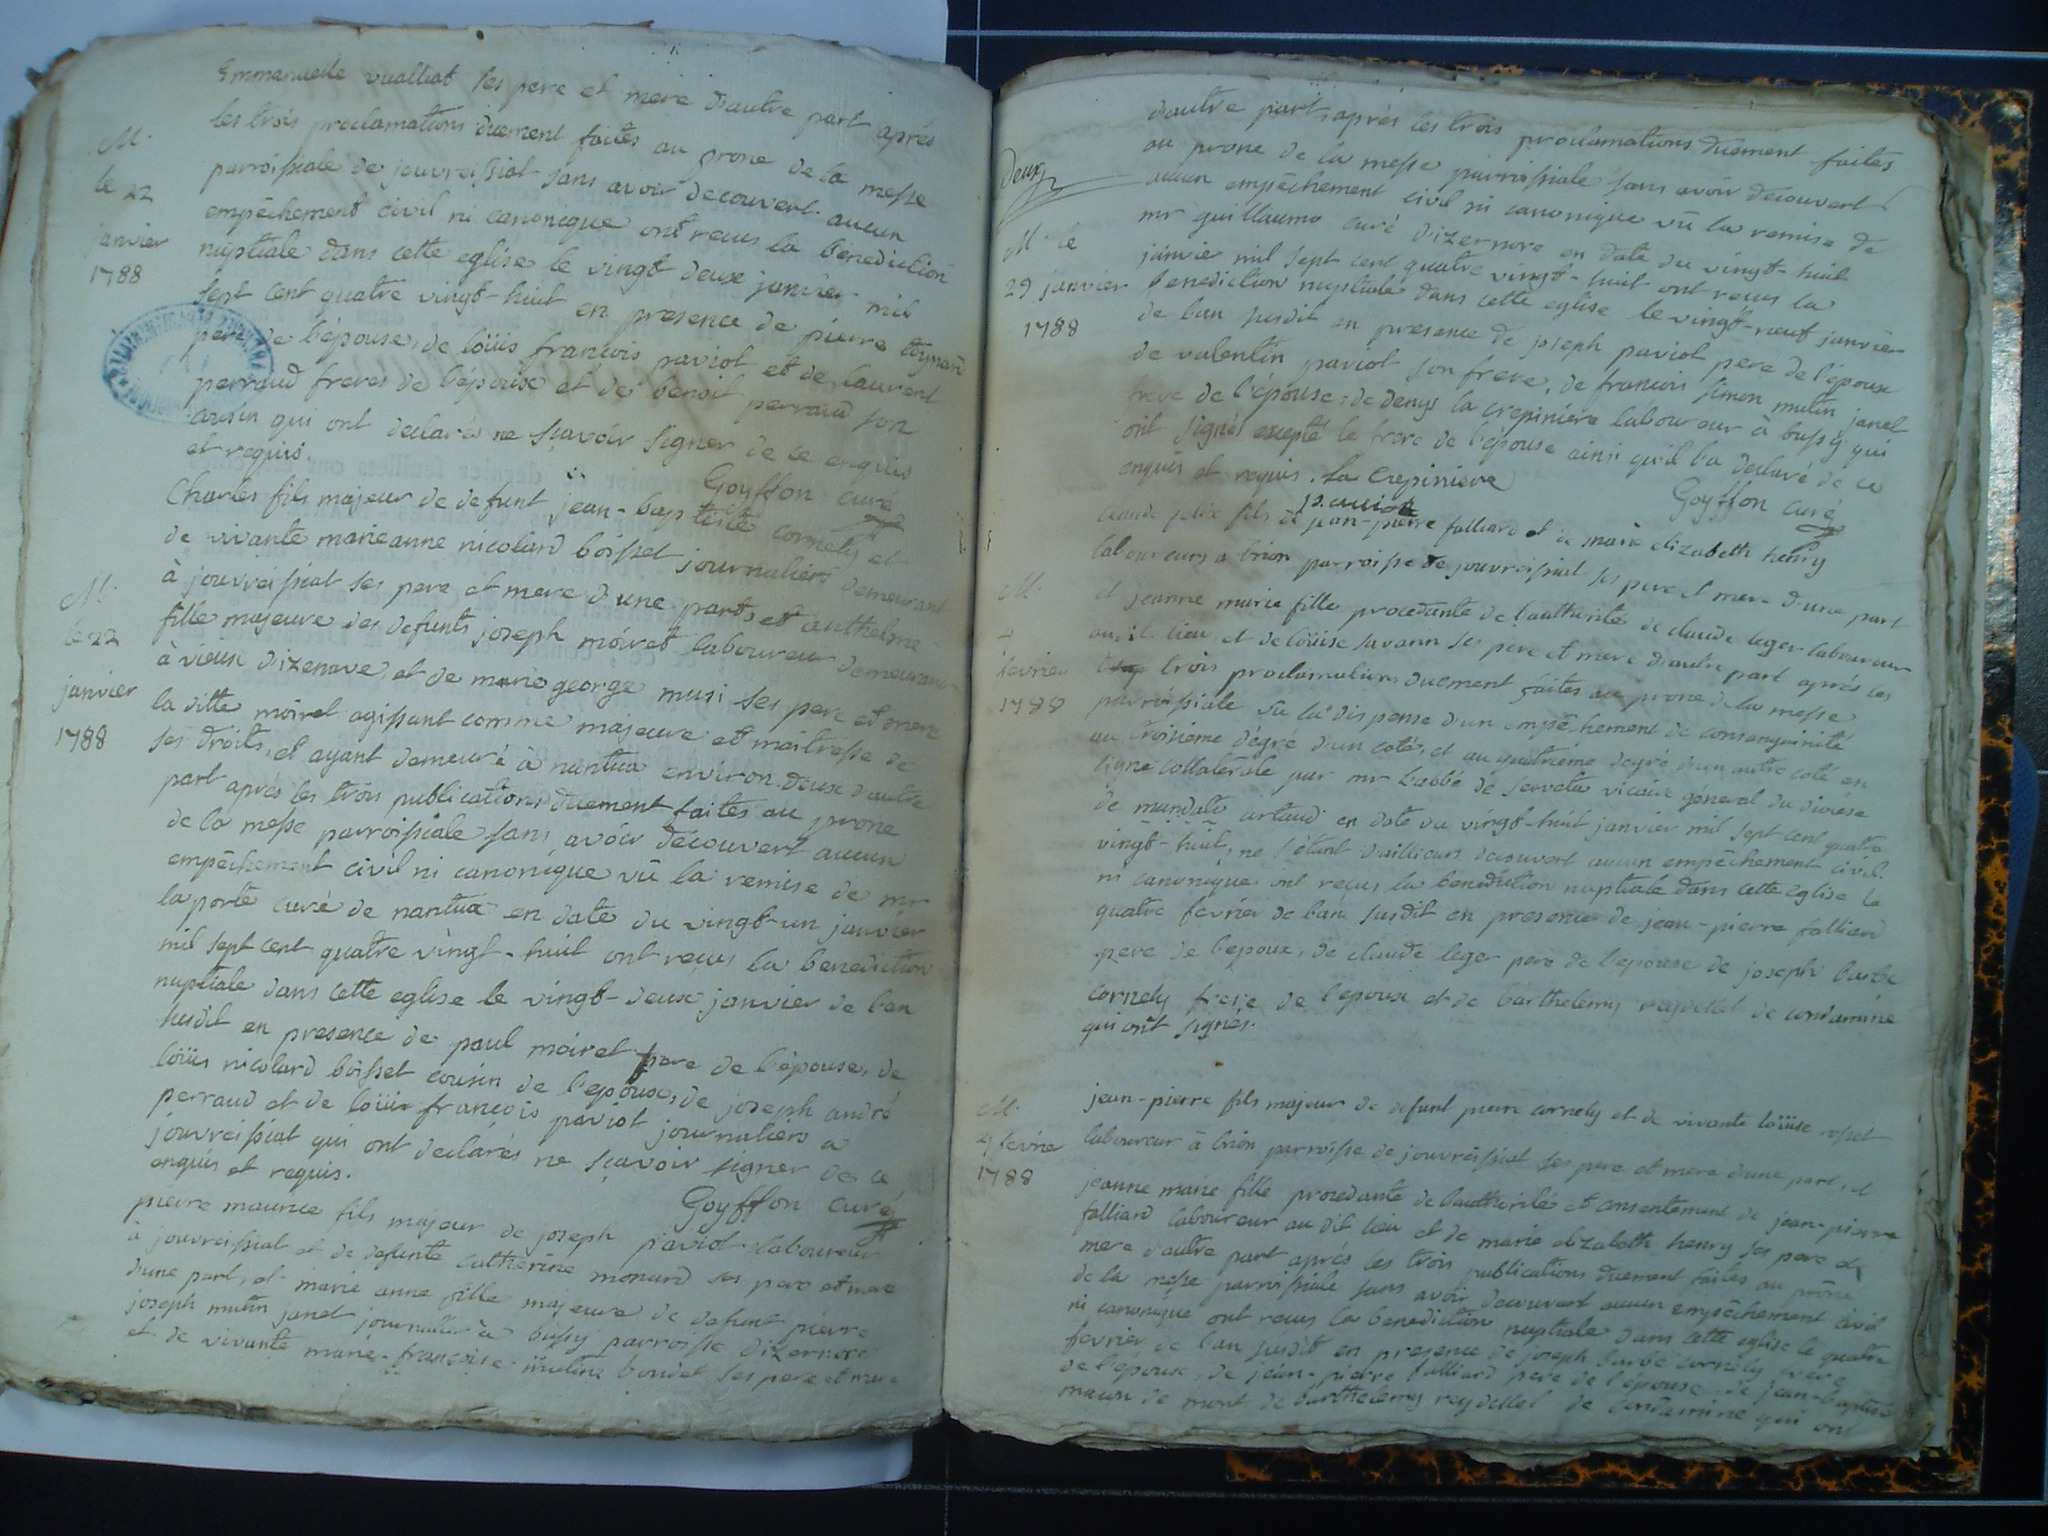 Emmanuelle vuaillat ses pere et mere d'autre part après
les trois proclamations duement faites au prone de la messe
parroissiale de jouvreissiat sans avoir decouvert aucun
empêchement civil ni canonique ont recus la benediction
nuptiale dans cette eglise le vingt deux janvier mil
sept cent quatre vingt-huit en presence de pierre
pere de l'épouse, de loüis françois paviot et de laurent
perraud freres de l'épouse et de benoit perraud son
cousin qui ont declarés ne sçavoir signer de ce enquis
et requis. Goyffon curé
M.
le 22
janvier
1788
Charles fils majeur de defunt jean-baptiste cornely et
de vivante marieanne nicolard boisset journaliers demeurant
à jouvreissiat ses pere et mere d'une part, et anthelmé
fille majeure des defunts joseph moiret laboureur demeurant
à vieux dizenave, et de marie george musi ses pere et mere
la ditte moiret agissant comme majeure et maitresse de
ses droits, et ayant demeuré à nantua environ deux d'autre
part après les trois publications duement faites au prone
de la messe parroissiale sans avoir découvert aucun
empêchement civil ni canonique vû la remise de mr
laporte curé de nantua en date du vingt-un janvier
mil sept cent quatre vingt-huit ont reçus la benediction
nuptiale dans cette eglise le vingt-deux janvier de l'an
susdit en presence de paul moiret frere de l'épouse, de
loüis nicolard boisset cousin de l'epoux, de joseph andré
perraud et de loüis françois paviot journaliers a
jouvreissiat qui ont declarés ne sçavoir signer de ce
enquis et requis. Goyffon curé
M.
le 22
janvier
1788
pierre maurice fils majeur de joseph paviot laboureur
à jouvreissiat et de defunte catherine monard ses pere et mere
d'une part, et marie anne fille majeure de defunt pierre
joseph mutin janet journalier à bussy parroisse dizernore
et de vivante marie-françoise mutin boudet ses pere et mere
d'autre part, après les trois proclamations duement faites
au prone de la messe parroissiale sans avoir découvert
aucun empêchement civil ni canonique vû la remise de
mr guillaume curé dizernore en date du vingt-huit
janvier mil sept cent quatre vingt-huit ont recus la
benediction nuptiale dans cette eglise le vingt-neuf janvier
de l'an susdit en presence de joseph paviot pere de l'époux
de valentin paviot son frere, de francois simon mutin janet
frere de l'épouse, de denys la crepiniere laboureur à bussy qui
ont signés excepté le frere de l'épouse ainsi qu'il l'a declaré de ce
enquis et requis. La Crepiniere
Goyffon curé
Deux
M. le
29 janvier
1788
claude felix fils de jean-pierre falliard et de marie elizabeth henry
laboureurs a brion parroisse de jouvreissiat ses pere et mere d'une part
et jeanne marie fille procedante de l'authorité de claude leger laboureur
audit lieu et de loüise savarin ses pere et mere d'autre part après les
trois proclamations duement faites au prone de la messe
parroissiale vû la dispense d'un empêchement de consanguinité
au troisieme dégré d'un coté, et au quatriéme degré d'un autre coté en
ligne collaterale par mr l'abbé de vicaire général du diocese
de mandato artaud en date du vingt-huit janvier mil sept cent quatre
vingt-huit, ne s'étant d'ailleurs decouvert aucun empêchement civil
ni canonique ont reçus la benediction nuptiale dans cette eglise le
quatre fevrier de l'an susdit en presence de jean-pierre falliard
pere de l'epoux, de claude leger pere de l'epouse de joseph barbe
cornely frere de l'epoux et de barthelemy reydellet de condamine
qui ont signés.
M.
4
fevrier
1788
jean-pierre fils majeur de defunt pierre cornely et de vivante loüise rosset
laboureur à brion parroisse de jouvreissiat ses pere et mere d'une part, et
jeanne marie fille procedante de l'authorité et consentement de jean-pierre
falliard laboureur au dit lieu et de marie elizabeth henry ses pere et
mere d'autre part après les trois publications duement faites au prône
de la messe parroissiale sans avoir decouvert aucun empêchement civil
ni canonique ont recus la benediction nuptiale dans cette eglise le quatre
fevrier de l'an susdit en presence de joseph barbe cornely frere
de l'epoux, de jean-pierre falliard pere de l'épouse, de jean-baptiste
de mont de barthelemy reydellet de condamine qui ont
M.
4 fevrie
1788